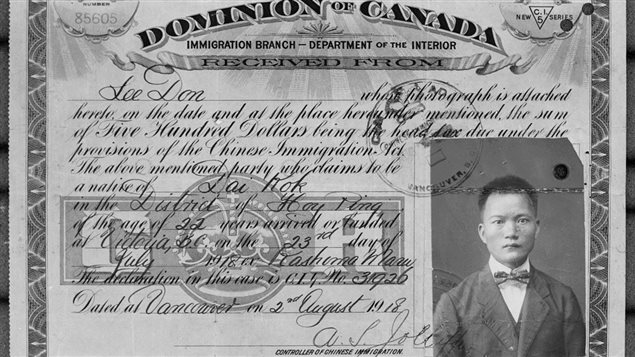 NUMBER
85605
DOMINION OF CANADA
NEW C.I. 5 SERIES
IMMIGRATION BRANCH — DEPARTMENT OF THE INTERIOR
RECEIVED FROM
Lee Don whose photograph is attached
hereto, on the date and at the place hereunder mentioned, the sum
of Five Hundred Dollars being the head tax due under the
provisions of the Chinese Immigration Act.
The above mentioned party who claims to be
a native of Dai Hok
in the District of Hoy Ping
of the age of 22 years arrived or landed
at Victoria, B.C. on the 23rd day of
July 1918 ex Kashima Maru
The declaration in this case is C.I.4. No. 31926
Dated at Vancouver on 2nd August 1918
CONTROLLER OF CHINESE IMMIGRATION.
VANCOUVER, B.C.